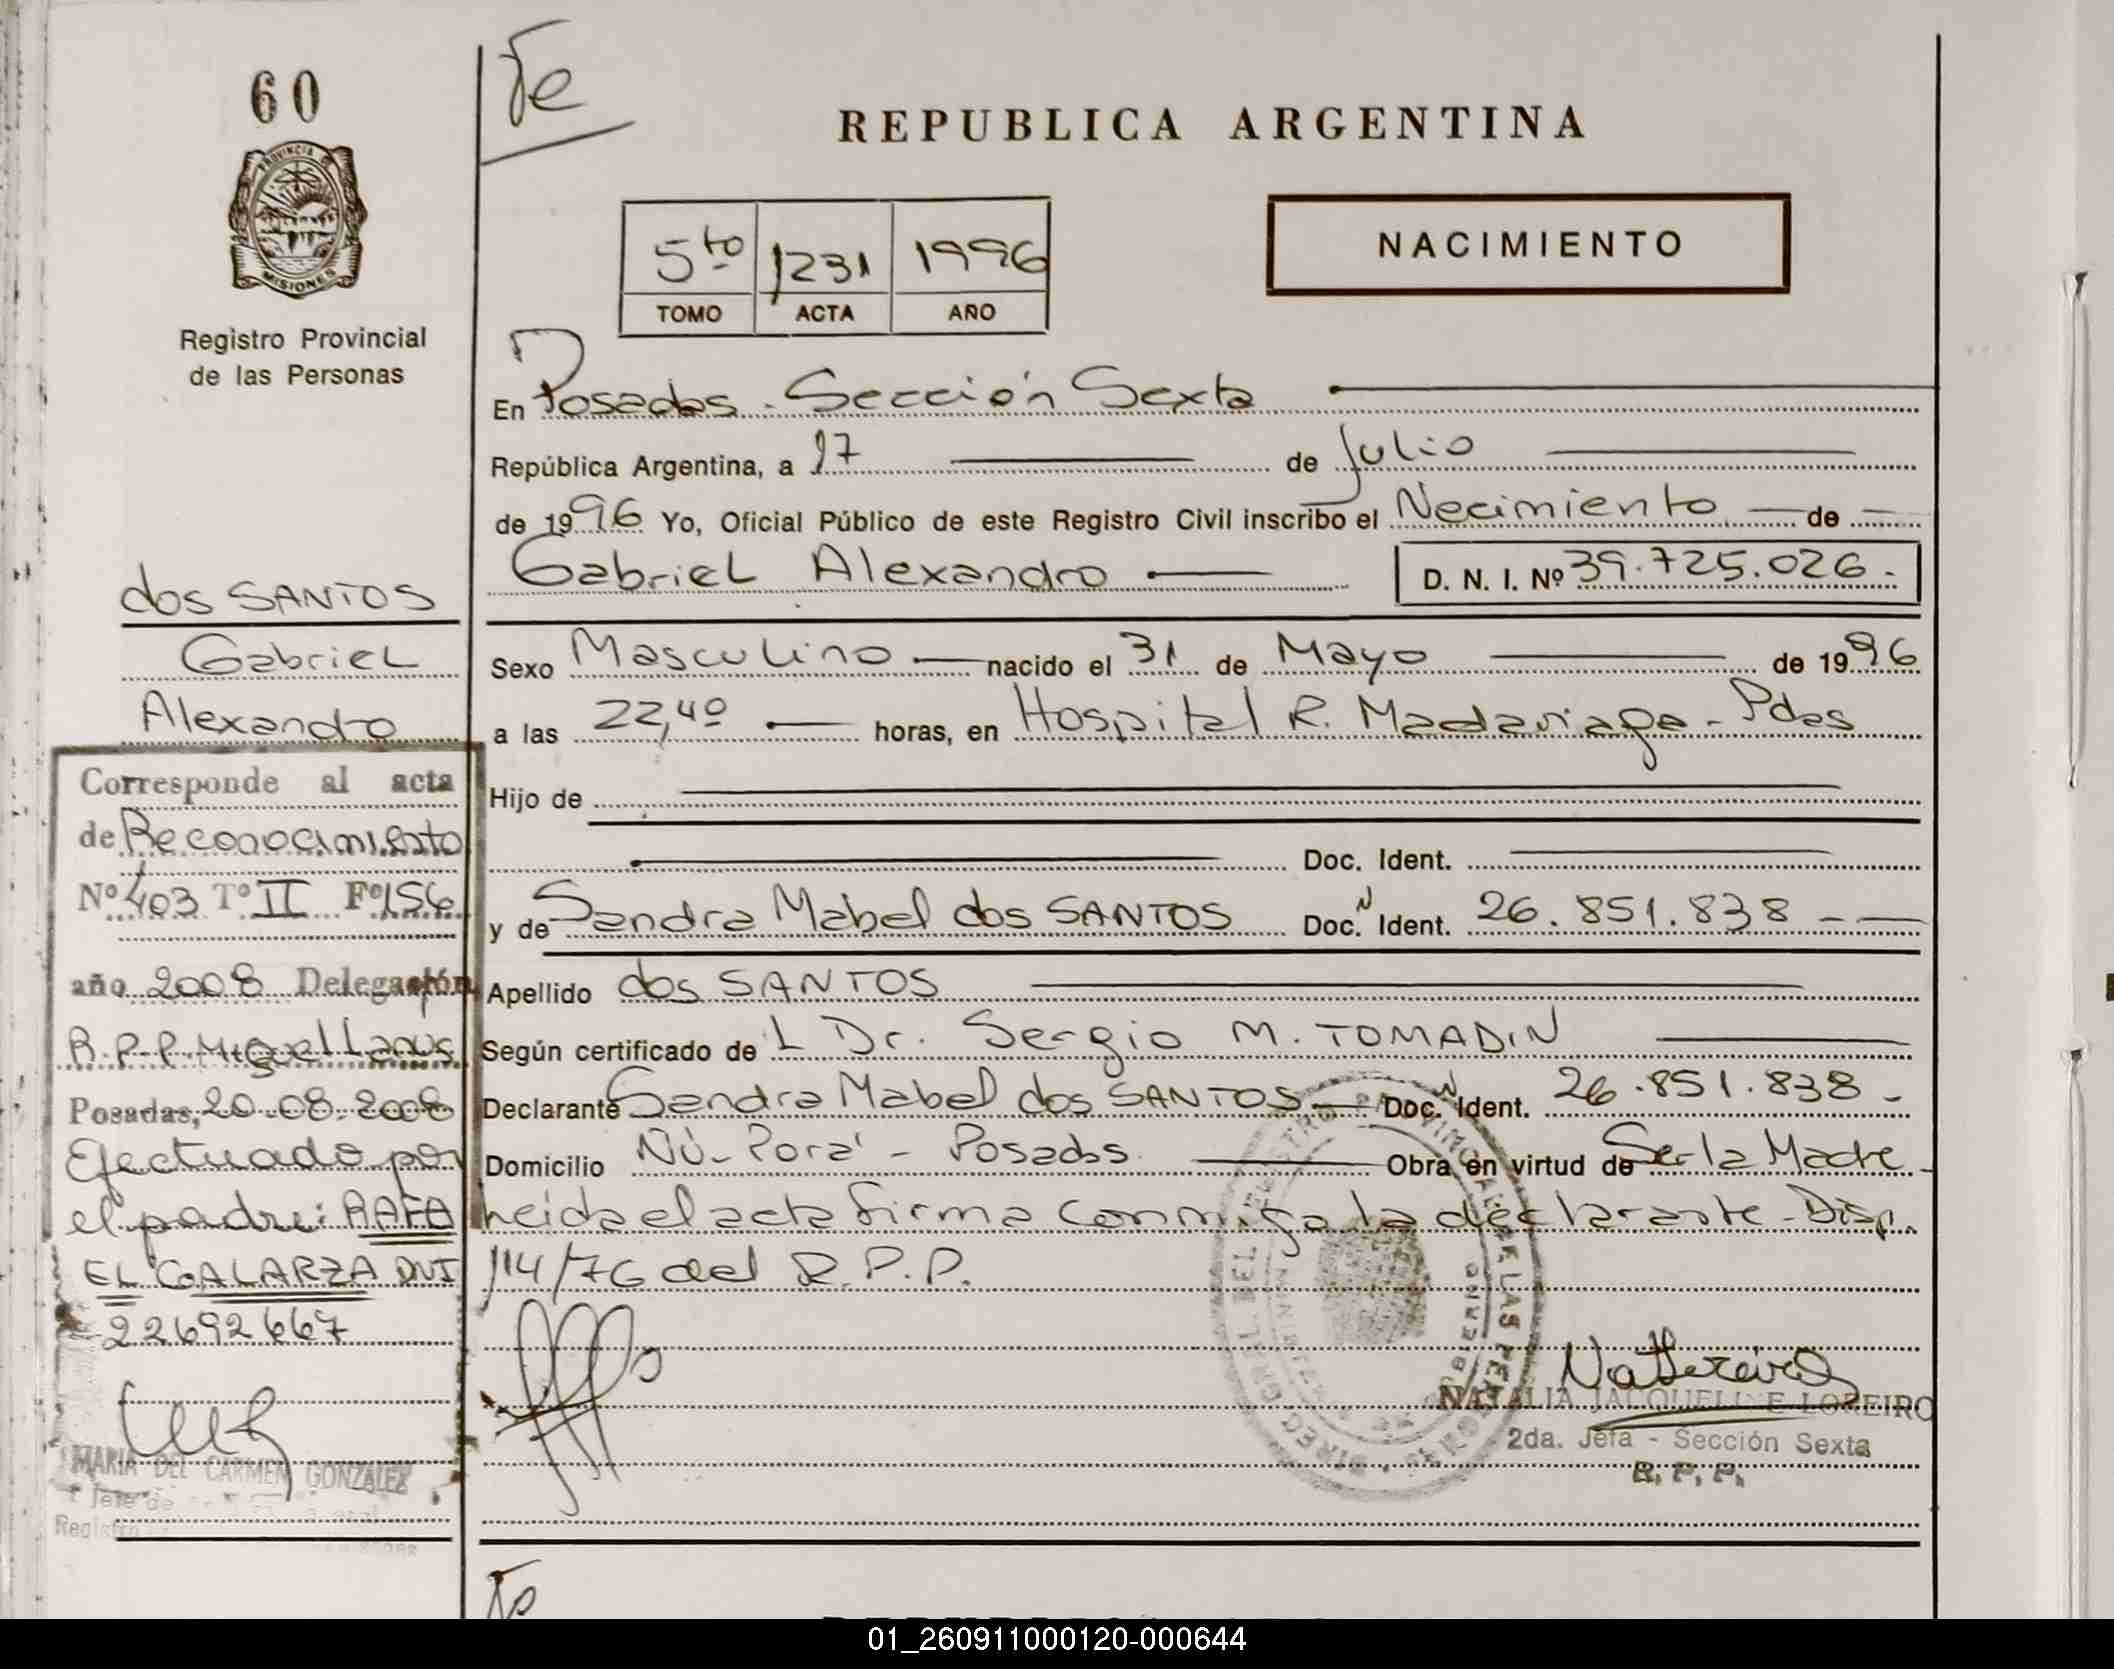 60
Te
REPUBLICA ARGENTINA
PROVINCIA DE
MISIONES
Registro Provincial
de las Personas
5to 1231 1996
TOMO ACTA AÑO
NACIMIENTO
En Posadas - Sección Sexta
República Argentina, a 17 de Julio
de 1996 Yo, Oficial Público de este Registro Civil inscribo el Nacimiento de
Gabriel Alexandro D. N. I. Nº 39.725.026.
Sexo Masculino nacido el 31 de Mayo de 1996
a las 22,40 horas, en Hospital R. Madariaga - Pdas
Hijo de
Doc. Ident.
y de Sandra Mabel dos SANTOS Doc. N Ident. 26.851.838
Apellido dos SANTOS
Según certificado de L Dr. Sergio M. TOMADIN
Declarante Sandra Mabel dos SANTOS Doc. N Ident. 26.851.838
Domicilio Ñú-Porá - Posadas Obra en virtud de Ser la Madre
Leída el acta firma conmigo la declarante - Disp.
114/76 del R.P.P.
NATALIA JACQUELINE LOREIRO
2da. Jefa - Sección Sexta
R. P. P.
dos SANTOS
Gabriel
Alexandro
Corresponde al acta
de Reconocimiento
Nº 403 Tº II Fº 156
año 2008 Delegación
R.P.P. Miguel Lanus
Posadas, 20-08-2008
Efectuado por
el padre: RAFA
EL GALARZA DNI
22692667
MARIA DEL CARMEN GONZALEZ
Jefe de
Registro
01_260911000120-000644